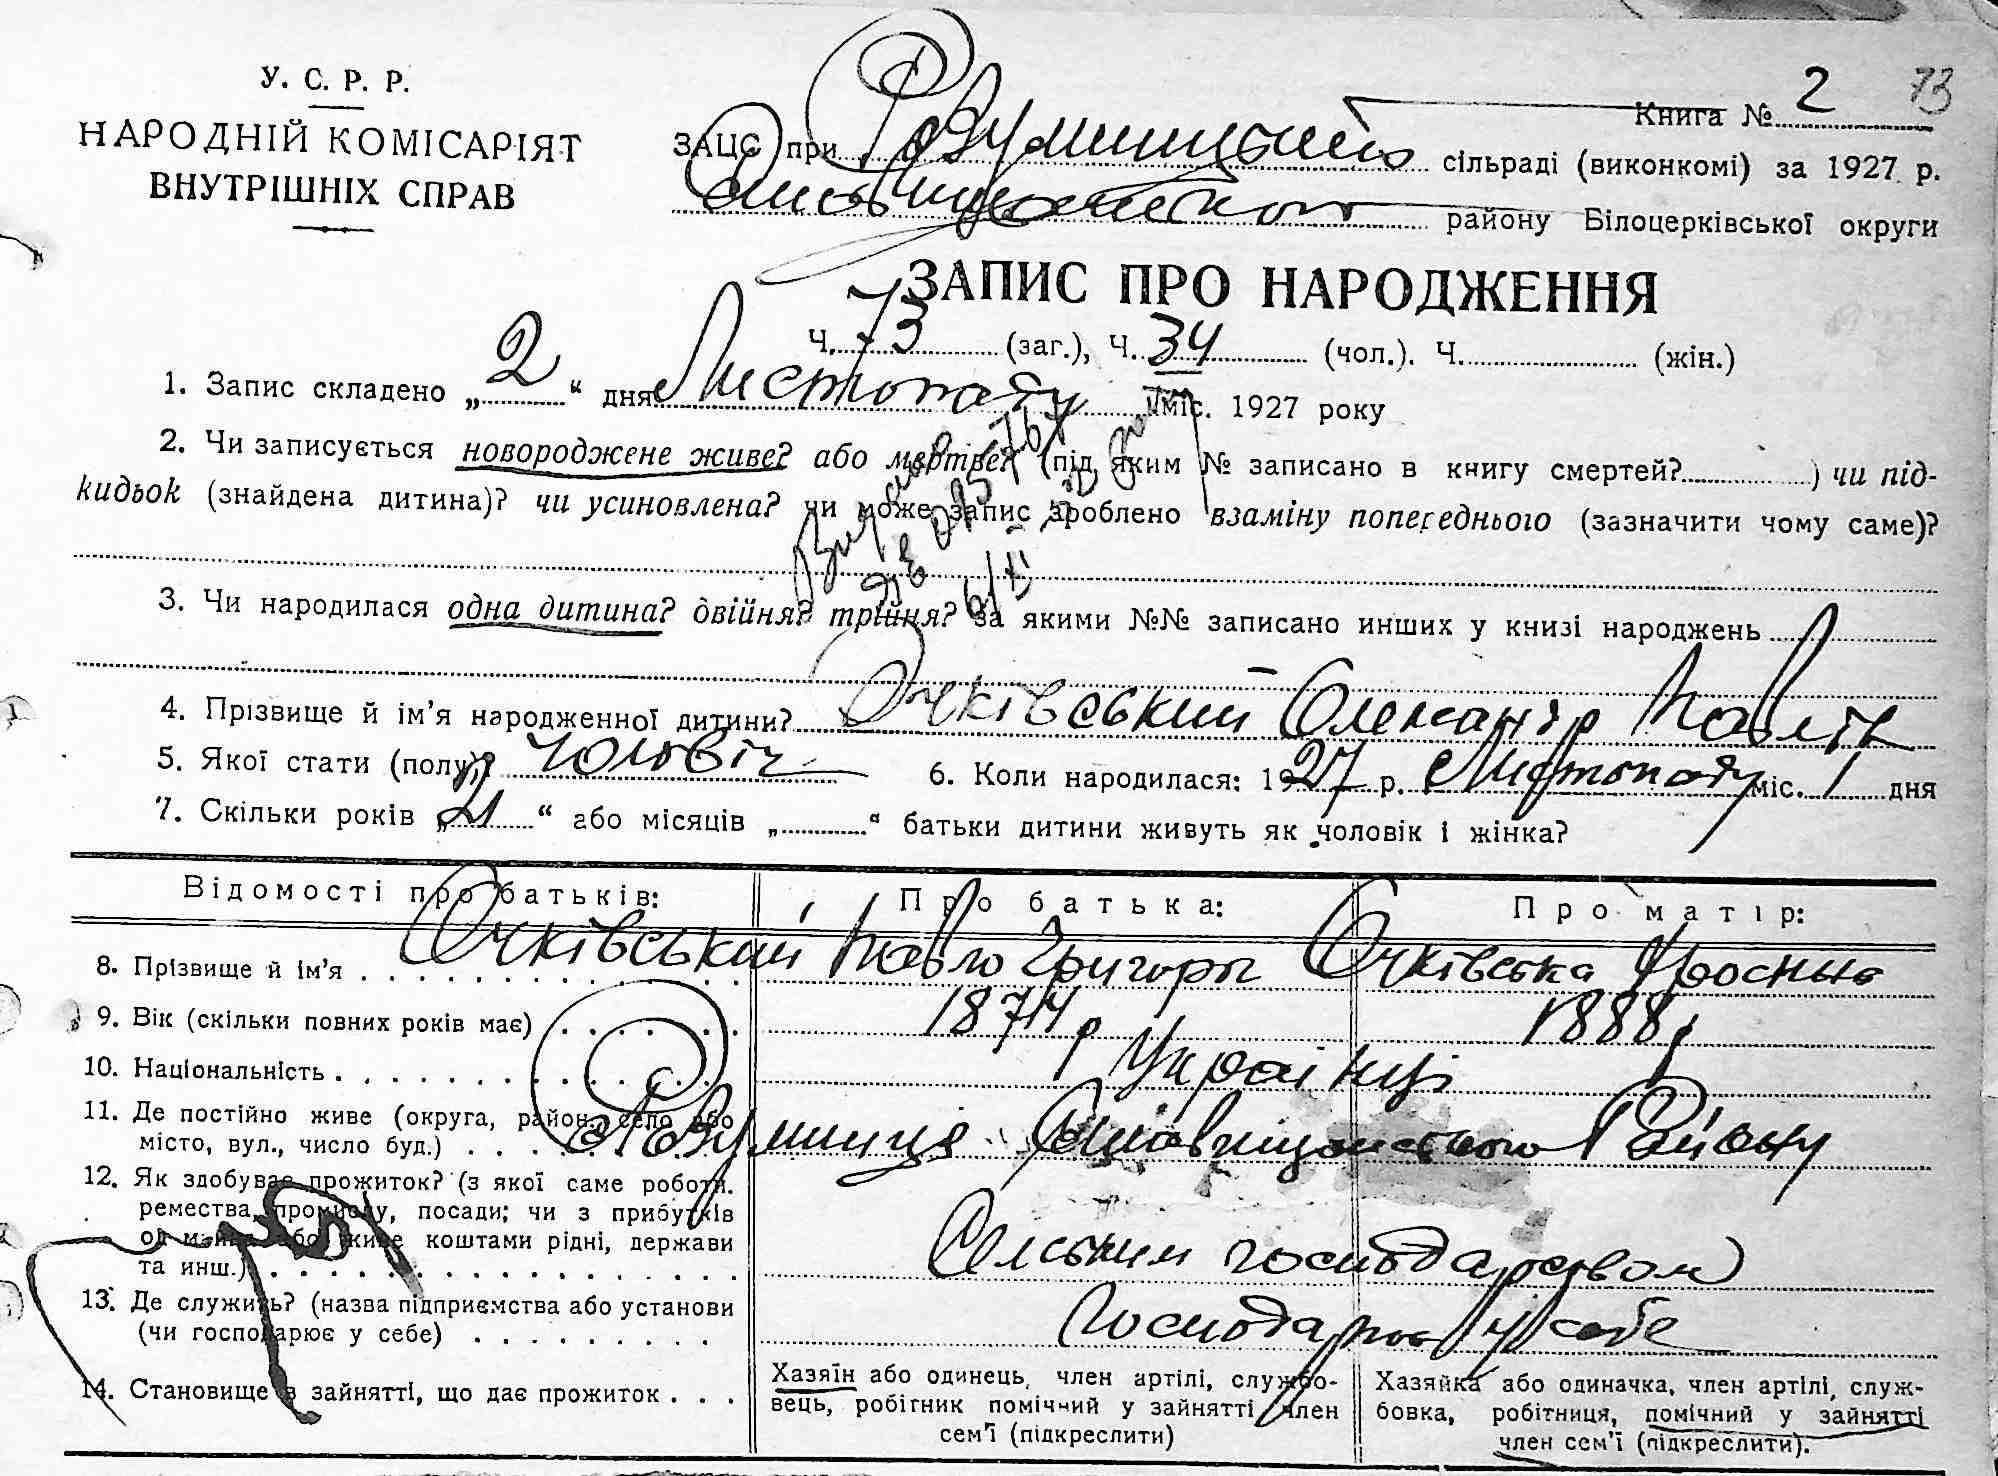 У. С. Р. Р.
НАРОДНІЙ КОМІСАРІЯТ
ВНУТРІШНІХ СПРАВ
Книга № 2 73
ЗАЦС при Розумницькій сільраді (виконкомі) за 1927 р.
району Білоцерківської округи
ЗАПИС ПРО НАРОДЖЕННЯ
Ч. 73 (заг.), Ч. 34 (чол.). Ч. (жін.)
1. Запис складено „ 2 “ дня Листопаду міс. 1927 року
2. Чи записується новороджене живе? або мертве? (під яким № записано в книгу смертей? ) чи під-
кидьок (знайдена дитина)? чи усиновлена? чи може запис зроблено взаміну попереднього (зазначити чому саме)?
3. Чи народилася одна дитина? двійня? трійня? за якими №№ записано инших у книзі народжень
4. Прізвище й ім’я народженної дитини? Очківський Олександр Павлів
5. Якої стати (полу)? чоловіч 6. Коли народилася: 1927 р. Листопаду міс. 1 дня
7. Скільки років „ 21 “ або місяців „ “ батьки дитини живуть як чоловік і жінка?
Відомості про батьків: Про батька: Про матір:
8. Прізвище й ім’я Очківський Павло Григоры Очківська
9. Вік (скільки повних років має) 1874 р 1888 р
10. Національність Українці
11. Де постійно живе (округа, район, село або
місто, вул., число буд.) Розумниця Район
12. Як здобуває прожиток? (з якої саме роботи.
ремества, промислу, посади; чи з прибутків
од майна або живе коштами рідні, держави
та инш.) Сельським господарством
13. Де служить? (назва підприємства або установи
(чи господарює у себе) Господарює у себе
14. Становище в зайнятті, що дає прожиток
Хазяїн або одинець, член артілі, службо-
вець, робітник помічний у зайнятті член
сем’ї (підкреслити)
Хазяйка або одиначка, член артілі, служ-
бовка, робітниця, помічний у зайнятті
член сем’ї (підкреслити).